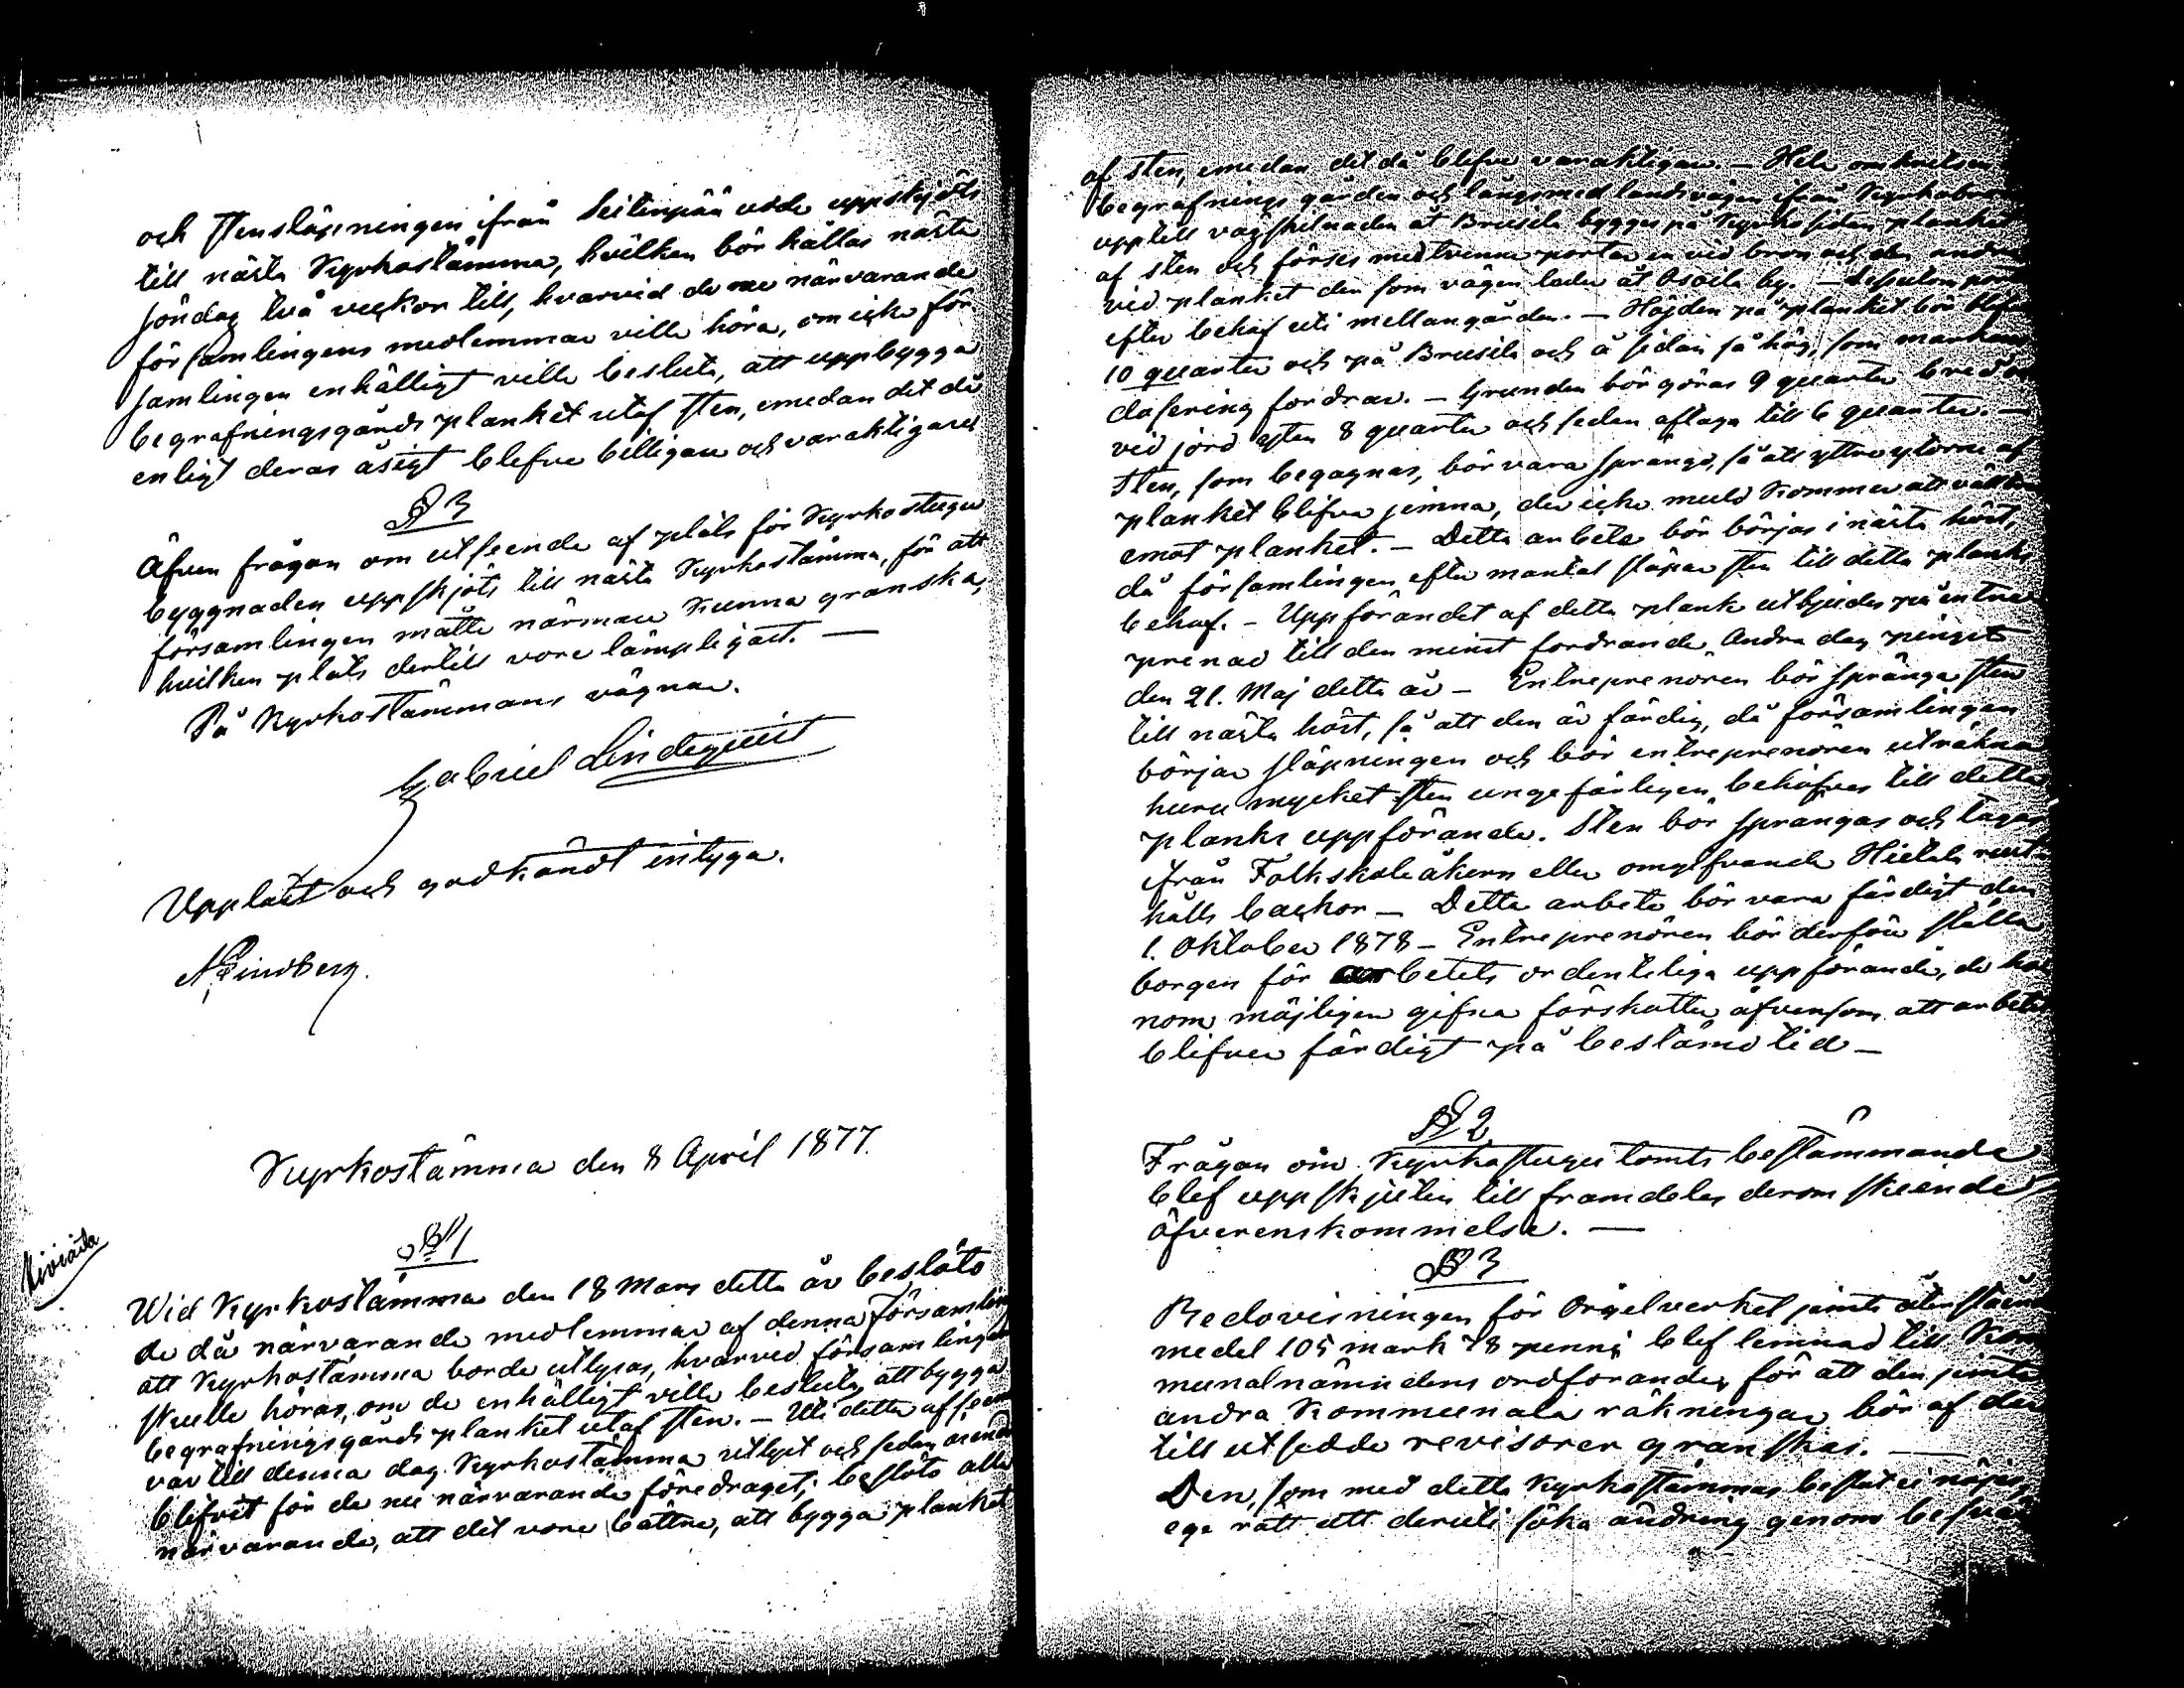 och stensläpningen ifrån Seitinpää udde uppskjöts
till nästa Kyrkostämma, hvilken bör hållas nästa
söndag två veckor till, hvarvid de nu närvarande
församlingens medlemmar ville höra, om icke för
samlingen enhälligt ville besluta, att uppbygga
begrafningsgårds planket utaf sten, emedan det då
enligt deras åsigt blefve billigare och varaktigare
§ 3
Äfven frågan om utseende af plats för Kyrkostugu
byggnaden uppskjöts till nästa Kyrkostämma, för att
församlingen måtte närmare kunna granska,
hvilken plats dertill vore lämpligast. —
På Kyrkostämmans vägnar.
Gabriel Lindequist
Uppläst och godkändt intyga.
A Lindberg.
Kyrkostämma den 8 April 1877.
§ 1
Wid Kyrkostämma den 18 Mars detta år beslöto
de då närvarande medlemmar af denna församling
att Kyrkostämma borde utlysas, hvarvid församlingen
skulle höras, om de enhälligt ville besluta att bygga
begrafningsgårds planket utaf sten. — Uti detta afseende
var till denna dag Kyrkostämma utlyst och sedan ärendet
blifvit för de nu närvarande föredraget, beslöto alla
närvarande, att det vore bättre, att bygga planket
af sten, emedan det då blefve varaktigare. — Hela omkretsen
begrafnings gården och längsmed landsvägen ifrån Kyrkobron
upp till vägskilnaden åt Brusila bygges på Kyrko sidan planket
af sten och förses med tvenne portar en vid bron och den andra
vid planket den som vägen leder åt by. — Dessutom
efter behof uti mellangården. — Höjden på planket bör blifva
10 quarter och på Brusila och å sidan så hög, som markens
dosering fordrar. — Grunden bör göras 9 quarter bred
vid jord ytan 8 quarter och sedan aftaga till 6 quarter. —
Sten, som begagnas, bör vara sprängd, så att yttre ytorne af
planket blifva jemna, der icke muld kommer att vältra
emot planket. — Detta arbete bör börjas i nästa höst,
då församlingen efter mantal släpar sten till detta planks
behof. — Uppförandet af detta plank utbjudes på entre
prenad till den minst fordrande Andra dag pingst
den 21. Maj detta år — Entreprenören bör spränga sten
till nästa höst, så att den är färdig, då församlingen
börjar släpningen och bör entreprenören uträkna
huru mycket sten ungefärligen behöfves till detta
planks uppförande. Sten bör sprängas och tagas
ifrån Folkskoleåkern eller omgifvande Hietala rust
hålls backor — Detta arbete bör vara färdigt den
1. Oktober 1878 — Entreprenören bör derföre ställa
borgen för arbetets ordentliga uppförande, de ho
nom möjligen gifna förskotter äfvensom att arbetet
blifver färdigt på bestämd tid —
§ 2
Frågan om Kyrkostugu tomts bestämmande
blef uppskjuten till framdeles derom skeende
öfverenskommelse. —
§ 3
Redovisningen för Orgelverket jämte återstående
medel 105 mark 78 penni blef lemnad till Kom
munalnämndens ordförande, för att den jemte
andra Kommunala räkningar bör af der
till utsedde revisorer granskas. —
Den, som med detta Kyrkostämmas beslut ei nöjes,
ege rätt att deruti söka ändring genom besvär